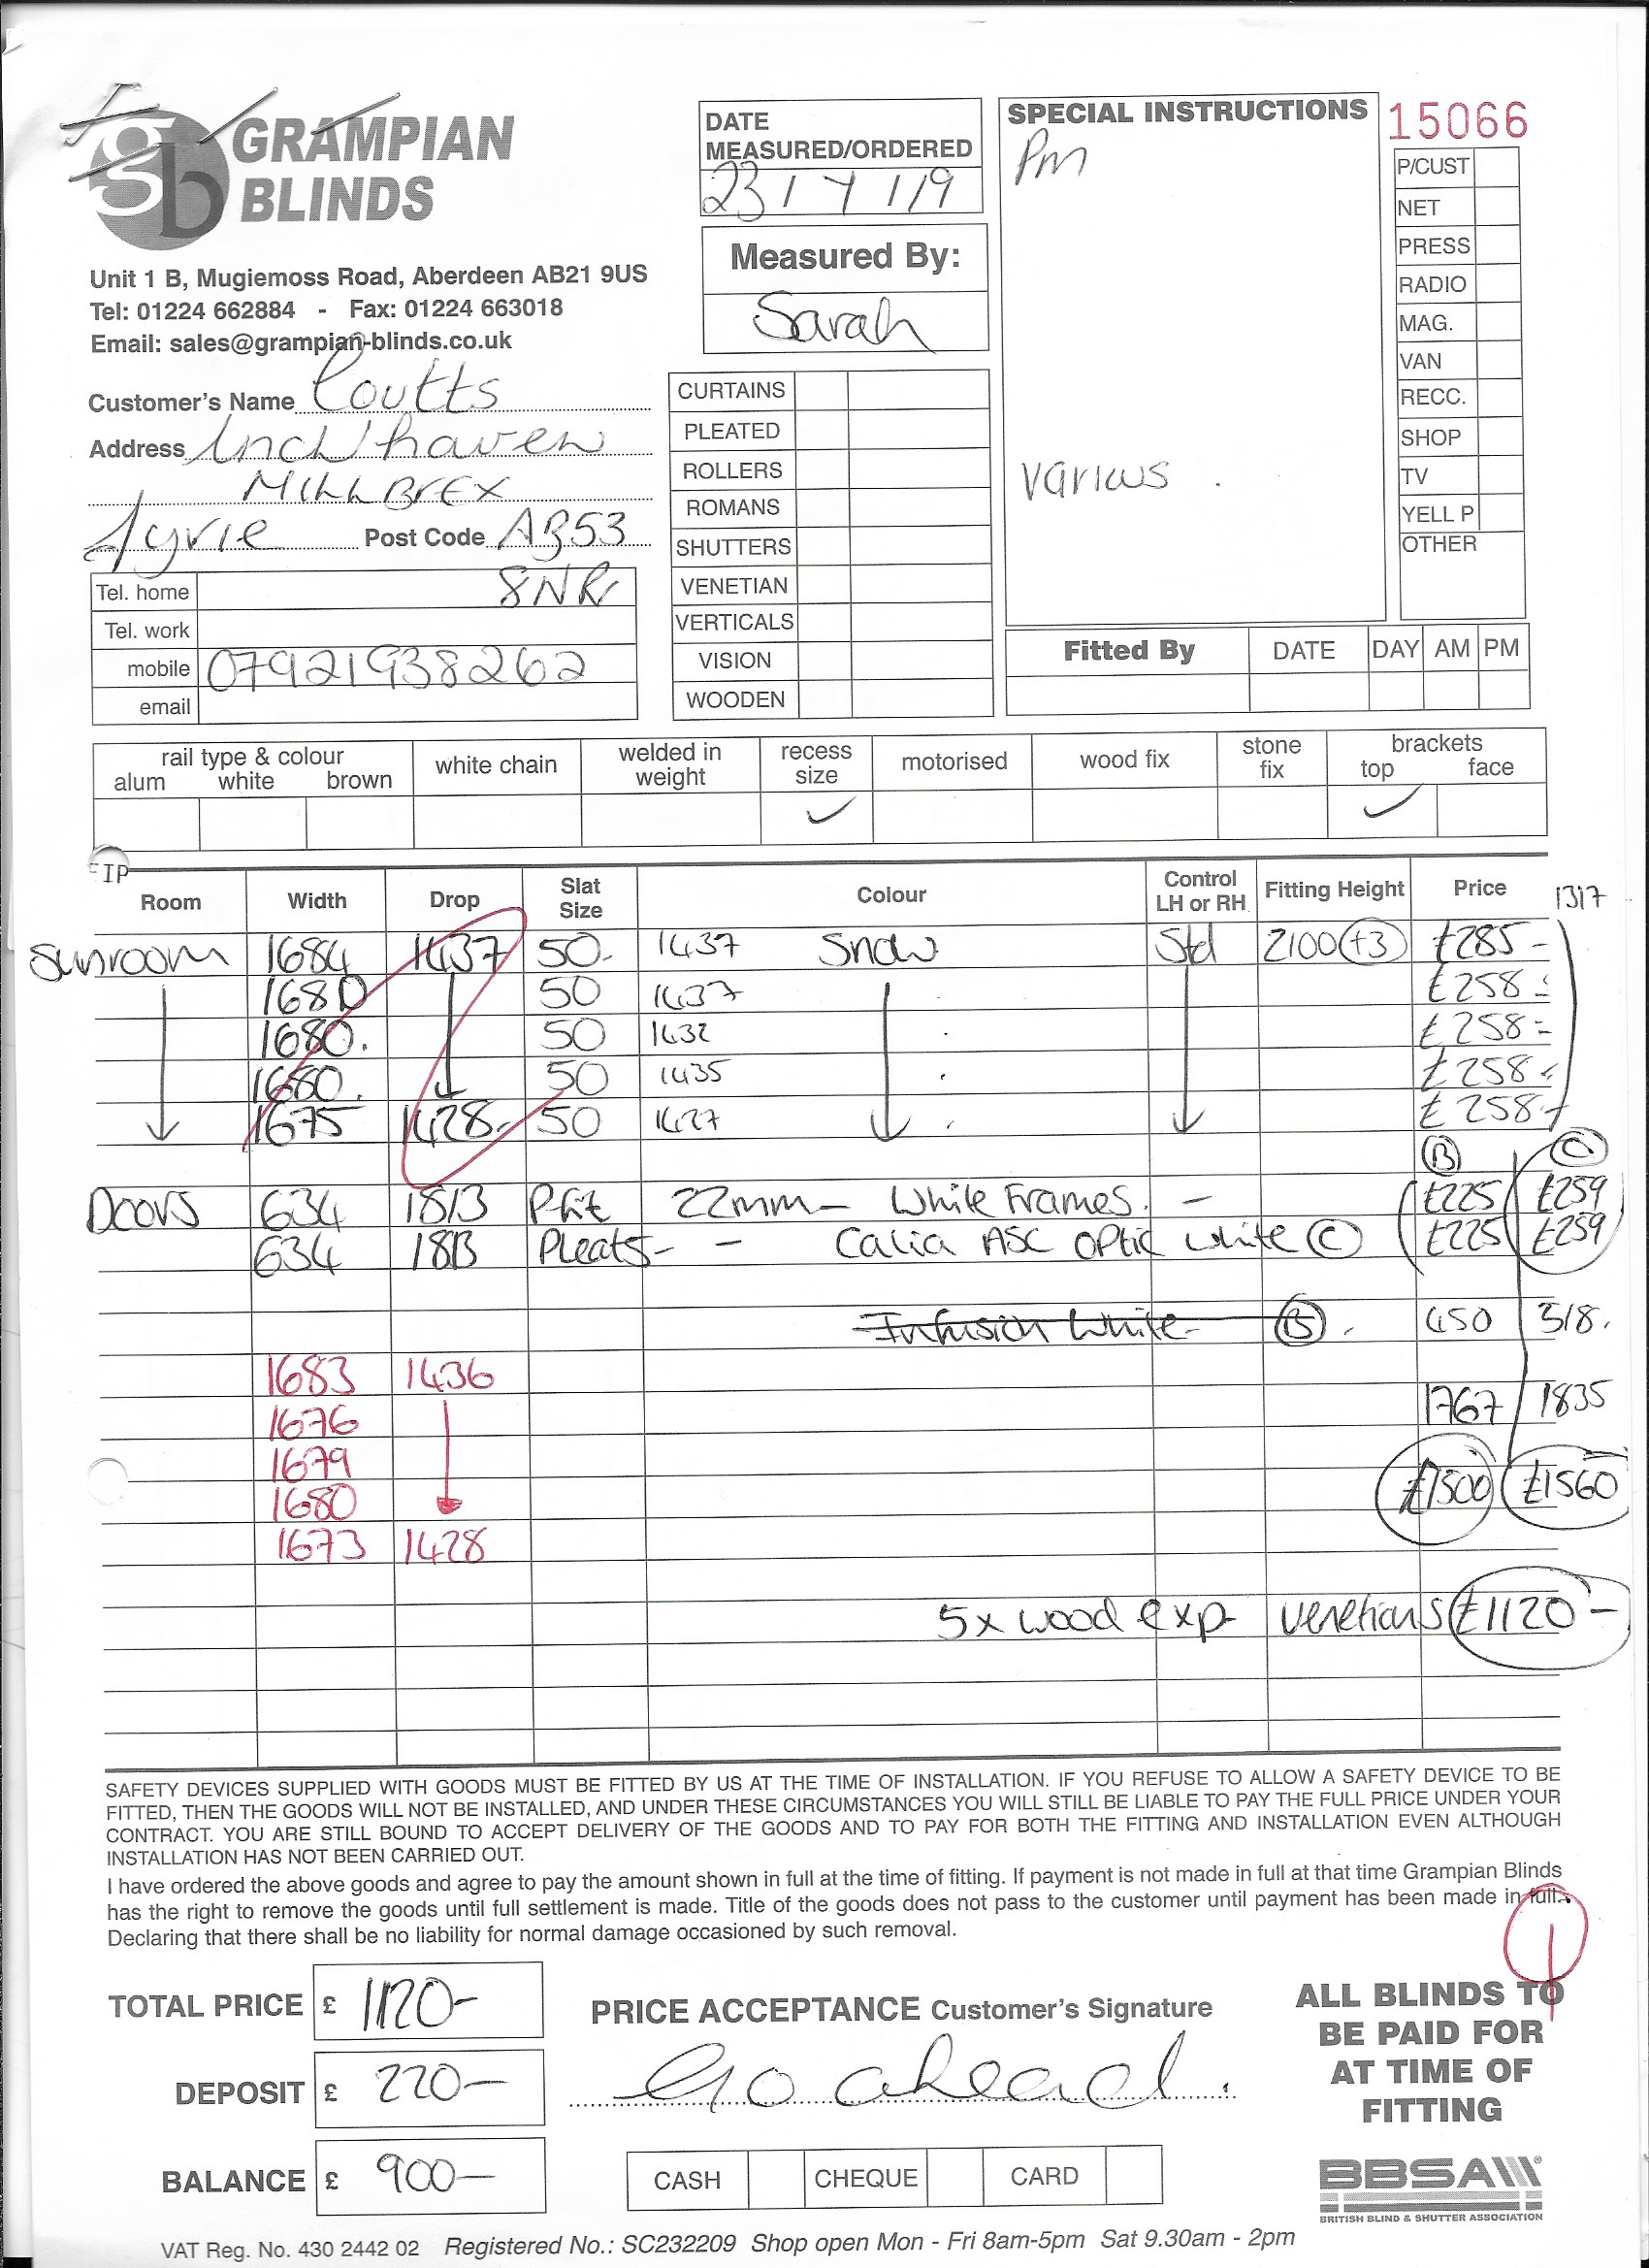 GRAMPIAN
BLINDS
Unit 1 B, Mugiemoss Road, Aberdeen AB21 9US
Tel: 01224 662884 - Fax: 01224 663018
Email: sales@grampian-blinds.co.uk
Customer's Name Coutts
Address Inchhaven
MILLBREX
Fyvie Post Code AB53
Tel. home 8NR
Tel. work
mobile 07921938262
email
DATE
MEASURED/ORDERED
23/7/19
Measured By:
Sarah
CURTAINS
PLEATED
ROLLERS
ROMANS
SHUTTERS
VENETIAN
VERTICALS
VISION
WOODEN
SPECIAL INSTRUCTIONS
Pm
Various .
15066
P/CUST
NET
PRESS
RADIO
MAG.
VAN
RECC.
SHOP
TV
YELL P
OTHER
Fitted By DATE DAY AM PM
rail type & colour white chain welded in weight recess size motorised wood fix stone fix brackets
alum white brown top face
✓ ✓
Room Width Drop Slat Size Colour Control LH or RH Fitting Height Price 1317
Sunroom 1684 1437 50. 1437 Snow Std 2100 (+3) £285-
1680 50 1437 £258-
1680. 50 1432 £258-
1680. 50 1435 £258-
1675 1428- 50 1427 £258-
B C
Doors 634 1813 P.fit 22mm- White Frames. - £225 £259
634 1813 Pleats- - Calia ASC Optic White C £225 £259
Infusion White- B . 450 518.
1683 1436
1676 1767 1835
1679
1680 £1500 £1560
1673 1428
5x wood exp venetians £1120-
SAFETY DEVICES SUPPLIED WITH GOODS MUST BE FITTED BY US AT THE TIME OF INSTALLATION. IF YOU REFUSE TO ALLOW A SAFETY DEVICE TO BE
FITTED, THEN THE GOODS WILL NOT BE INSTALLED, AND UNDER THESE CIRCUMSTANCES YOU WILL STILL BE LIABLE TO PAY THE FULL PRICE UNDER YOUR
CONTRACT. YOU ARE STILL BOUND TO ACCEPT DELIVERY OF THE GOODS AND TO PAY FOR BOTH THE FITTING AND INSTALLATION EVEN ALTHOUGH
INSTALLATION HAS NOT BEEN CARRIED OUT.
I have ordered the above goods and agree to pay the amount shown in full at the time of fitting. If payment is not made in full at that time Grampian Blinds
has the right to remove the goods until full settlement is made. Title of the goods does not pass to the customer until payment has been made in full.
Declaring that there shall be no liability for normal damage occasioned by such removal.
TOTAL PRICE £ 1120-
DEPOSIT £ 220-
BALANCE £ 900-
PRICE ACCEPTANCE Customer's Signature
Go ahead.
CASH CHEQUE CARD
ALL BLINDS TO
BE PAID FOR
AT TIME OF
FITTING
BBSA
BRITISH BLIND & SHUTTER ASSOCIATION
VAT Reg. No. 430 2442 02 Registered No.: SC232209 Shop open Mon - Fri 8am-5pm Sat 9.30am - 2pm